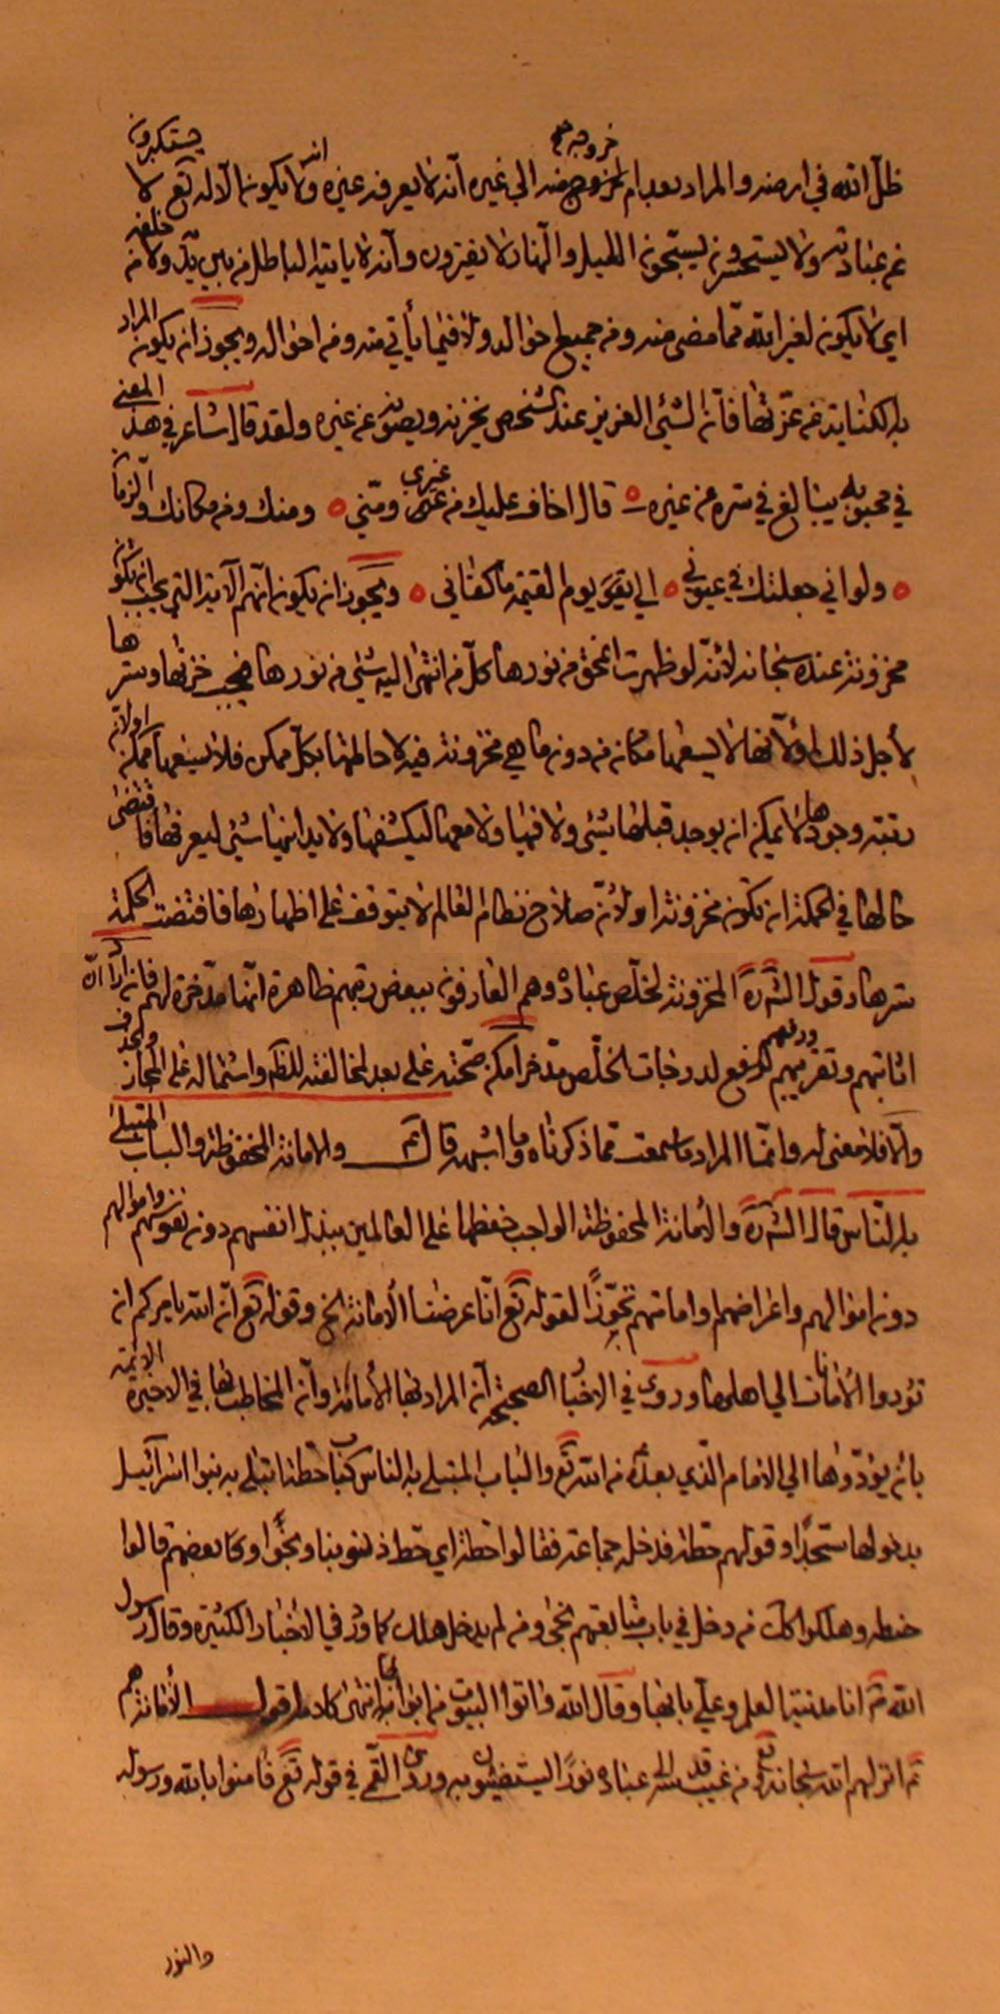 ظل الله في ارضه والمراد بعدم خروجه منه الى غيره انه لا يعرفه غيره ولا يكون الا له تع لا يستكبرون
عن عبادته ولا يستحسرون يسبحون الليل والنهار لا يفترون وانه لا ياتيه الباطل من بين يديه ولا من خلفه
اي لا يكون لغير الله مما مضى منه ومن جميع احواله ولا فيما يأتي منه ومن احواله ويجوز ان يكون المراد
به الكناية عن عزتها فان الشئ العزيز عند الشخص يخزنه ويصونه عن غيره ولقد قال الشاعر في هذا المعنى
في محبوبه يبالغ في ستره عن غيره قال اخاف عليك من غيري ومني ومنك ومن مكانك والزمان
ولو اني جعلتك في عيوني الى يوم القيمة ما كفاني ويجوز ان يكون انهم الآية التي يجب ان تكون
مخزونة عنده سبحانه لانه لو ظهرت انمحق من نورها كل من انتهى اليه شئ من نورها فيجب خزنها وسترها
لاجل ذلك او لانها لا يسعها مكان من دون ما هي مخزونة فيه لاحاطتها بكل ممكن فلا يسعها ممكن او لان
رتبة وجودها لا يمكن ان يوجد قبلها شئ ولا فيها ولا معها ليكشفها ولا يدانيها شئ ليعرفها فاقتضى
حالها في الحكمة ان تكون مخزونة او لان صلاح نظام العالم لا يتوقف على اظهارها فاقتضت الحكمة
سترها وقول الش ره المخزونة لخلص عباده وهم العارفون ببعض رتبهم ظاهرة انها مدخرة لهم فان اراد ان
اثابتهم وتقريبهم ورفعهم لرفع الدرجات لخلص مدخر امكن صحته على بعد لمخالفته للظ واشتماله على المجاز والحذف
والا فلا معنى له وانما المراد ما سمعت مما ذكرناه وما اشبهه قال ع والامانة المحفوظة والباب المبتلى
به الناس قال الش ره والامانة المحفوظة الواجب حفظها على العالمين ببذل انفسهم دون نفوسهم واموالهم
دون اموالهم واعراضهم تجوزا لقوله تع انا عرضنا الامانة الخ وقوله تع ان الله يامركم ان
تؤدوا الامانات الى اهلها وروى في الاخبار الصحيحة ان المراد بها الامامة وان المخاطب بها في الاخيرة الائمة
بان يؤدوها الى الامام الذي بعده من الله تع والباب المبتلى به الناس كباب حطة ابتلى به بنوا اسرائيل
بدخولها سجدا وقولهم حطة فدخله جماعة فقالوا حطة اي حط ذنوبنا ونجوا وكا بعضهم قالوا
حنطة وهلكوا كك من دخل في باب متابعتهم نجى ومن لم يدخل هلك كما ورد في الاخبار الكثيرة وقال رسول
الله ص انا مدينة العلم وعلي بابها وقال الله واتوا البيوت من ابوابها انتهى كلامه اقول الامانة هم
ع انزلهم الله سبحانه من غيب قدسه الى عباده نورا ليستضيئون به وروى القمي في قوله تع فامنوا بالله ورسوله
والنور